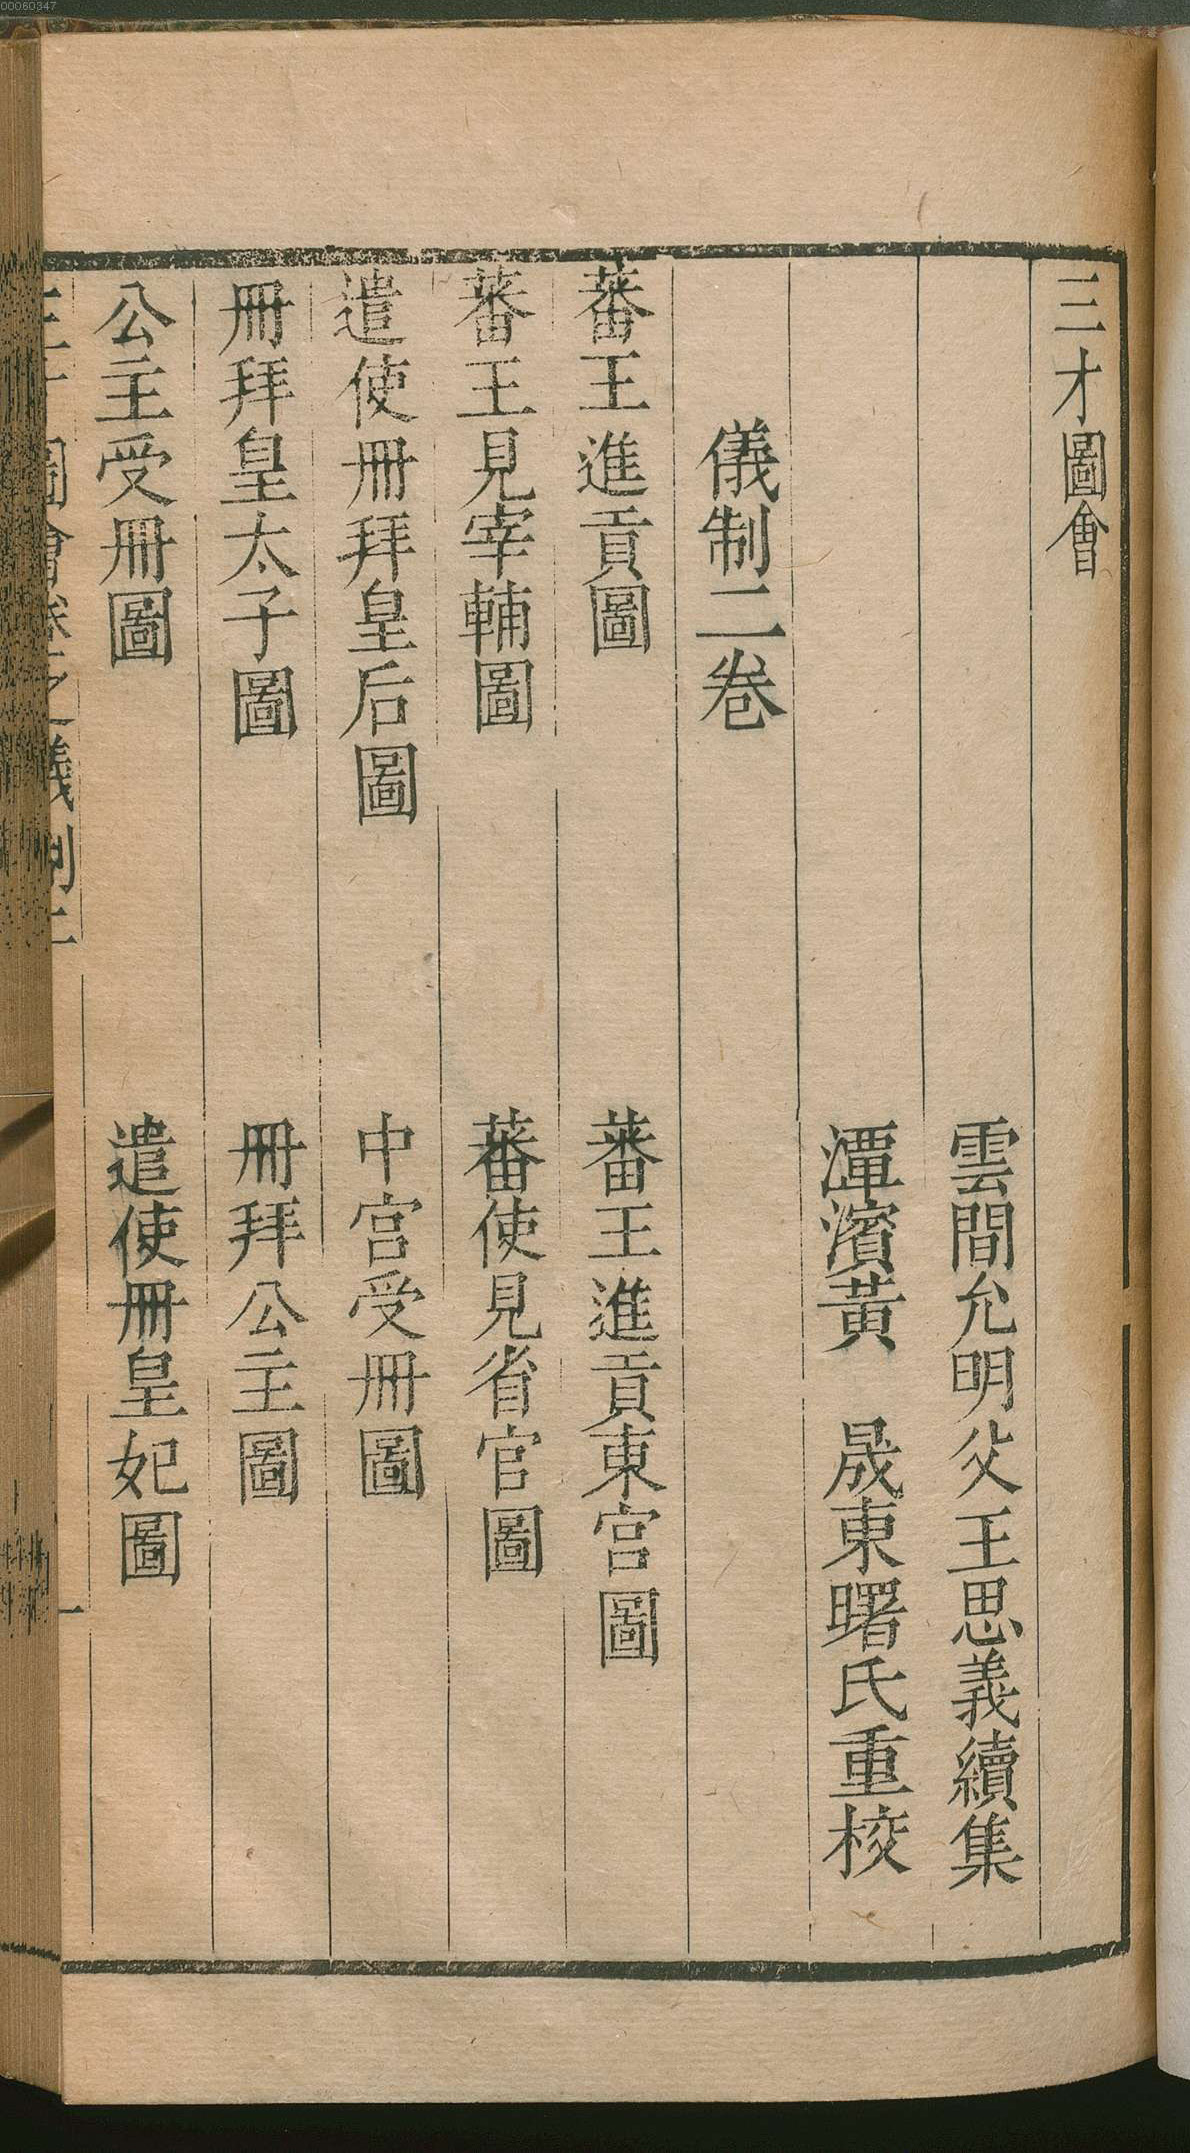 00060347
三才圖會
雲間允明父王思義續集
潭濱黃　晟東曙氏重校
儀制二卷
蕃王進貢圖　蕃王進貢東宮圖
蕃王見宰輔圖　蕃使見省官圖
遣使冊拜皇后圖　中宮受冊圖
冊拜皇太子圖　冊拜公主圖
公主受冊圖　遣使冊皇妃圖
三才圖會卷之二儀制二　一